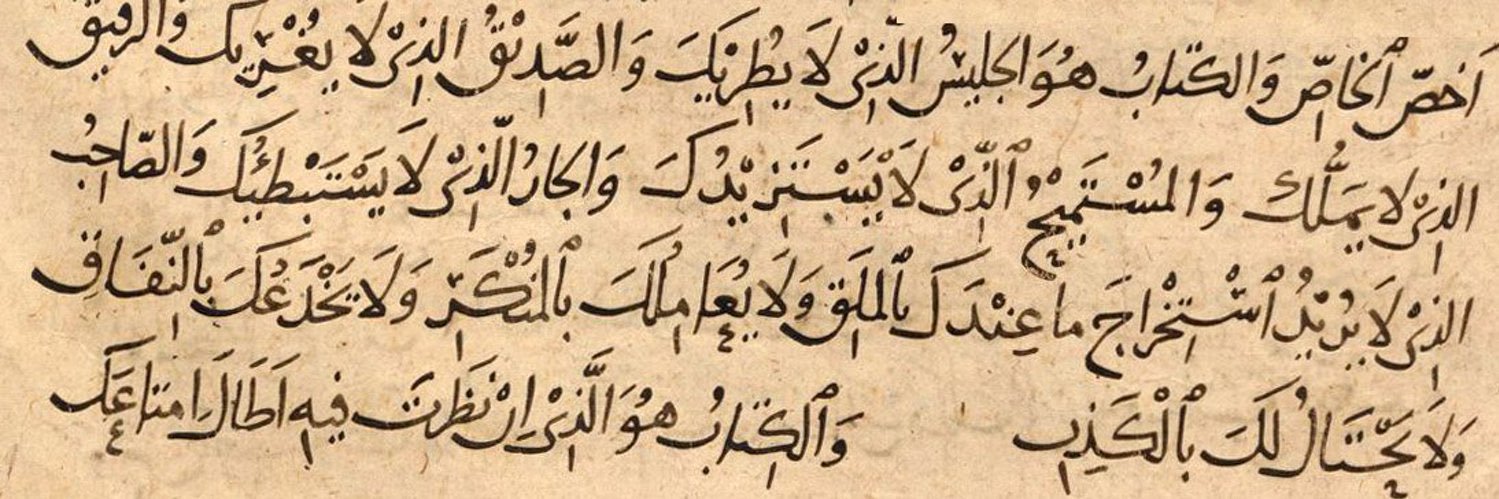 اَخصّ ٱلخاصّ وَالكتابُ هُوَ الجليسُ الّذِيْ لَا يُطرِيْكَ وَالصَّدِيْقُ الذِيْ لا يُغْرِيك وَالرفيق
الذِيْ لا يَمَلُّكَ وَالمُسْتَمِيْحُ ٱلَّذِيْ لَا يَسْتَزِيْدُكَ وَالجارُ الّذِيْ لَا يَسْتَبْطِئُكَ وَالصّاحِبُ
الذِيْ لَا يُرِيْدُ ٱسْتِخْرَاجَ ما عِنْدَكَ بِالمَلَقِ وَلَا يُعَامِلُكَ بِٱلمَكْرِ وَلَا يَخْدَعُكَ بِٱلنِّفَاقِ
وَلَا يَحْتَالُ لَكَ بِٱلْكَذِبِ وَٱلكِتَابُ هُوَ الَّذِيْ اِنْ نَظَرتَ فيهِ اَطَالَ اِمتاعَكَ